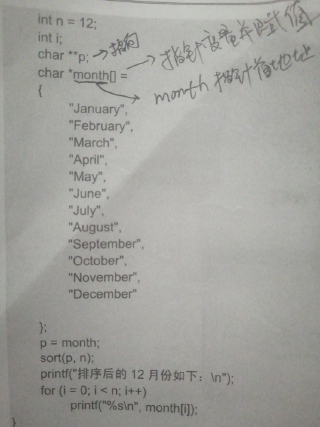 int n = 12;
int i;
char **p; →指向
char *month[] = →指针变量并赋值
month 指针首地址
{
"January",
"February",
"March",
"April",
"May",
"June",
"July",
"August",
"September",
"October",
"November",
"December"
};
p = month;
sort(p, n);
printf("排序后的 12 月份如下：\n");
for (i = 0; i < n; i++)
printf("%s\n", month[i]);
}